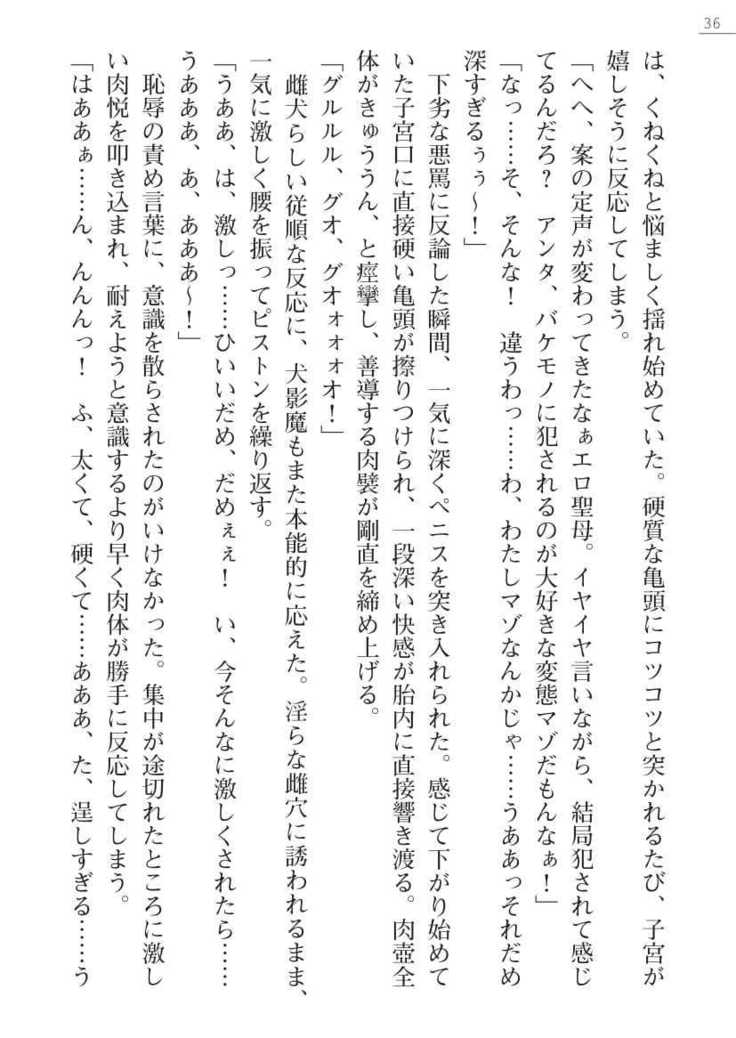 36
は、くねくねと悩ましく揺れ始めていた。硬質な亀頭にコツコツと突かれるたび、子宮が
嬉しそうに反応してしまう。
「へへ、案の定声が変わってきたなぁエロ聖母。イヤイヤ言いながら、結局犯されて感じ
てるんだろ？　アンタ、バケモノに犯されるのが大好きな変態マゾだもんなぁ！」
「なっ……そ、そんな！　違うわっ……わ、わたしマゾなんかじゃ……うああっそれだめ
深すぎるぅぅ～！」
　下劣な悪罵に反論した瞬間、一気に深くペニスを突き入れられた。感じて下がり始めて
いた子宮口に直接硬い亀頭が擦りつけられ、一段深い快感が胎内に直接響き渡る。肉壺全
体がきゅううん、と痙攣し、善導する肉襞が剛直を締め上げる。
「グルルル、グオ、グオォォォオ！」
　雌犬らしい従順な反応に、犬影魔もまた本能的に応えた。淫らな雌穴に誘われるまま、
一気に激しく腰を振ってピストンを繰り返す。
「うああ、は、激しっ……ひいいだめ、だめぇぇ！　い、今そんなに激しくされたら……
うあああ、あ、あああ～！」
　恥辱の責め言葉に、意識を散らされたのがいけなかった。集中が途切れたところに激し
い肉悦を叩き込まれ、耐えようと意識するより早く肉体が勝手に反応してしまう。
「はああぁ……ん、んんんっ！　ふ、太くて、硬くて……あああ、た、逞しすぎる……う